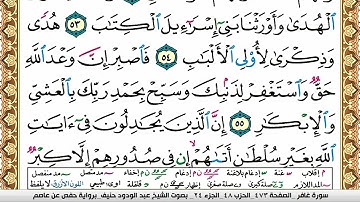 ٱلْهُدَىٰ وَأَوْرَثْنَا بَنِىٓ إِسْرَٰٓءِيلَ ٱلْكِتَٰبَ ٥٣ هُدًى
وَذِكْرَىٰ لِأُو۟لِى ٱلْأَلْبَٰبِ ٥٤ فَٱصْبِرْ إِنَّ وَعْدَ ٱللَّهِ
حَقٌّ وَٱسْتَغْفِرْ لِذَنۢبِكَ وَسَبِّحْ بِحَمْدِ رَبِّكَ بِٱلْعَشِىِّ
وَٱلْإِبْكَٰرِ ٥٥ إِنَّ ٱلَّذِينَ يُجَٰدِلُونَ فِىٓ ءَايَٰتِ
ٱللَّهِ بِغَيْرِ سُلْطَٰنٍ أَتَىٰهُمْ إِن فِى صُدُورِهِمْ إِلَّا كِبْرٌ
سورة غافر - الصفحة ٤٧٣ - الحزب ٤٨ - الجزء ٢٤ - بصوت الشيخ عبد الودود حنيف برواية حفص عن عاصم